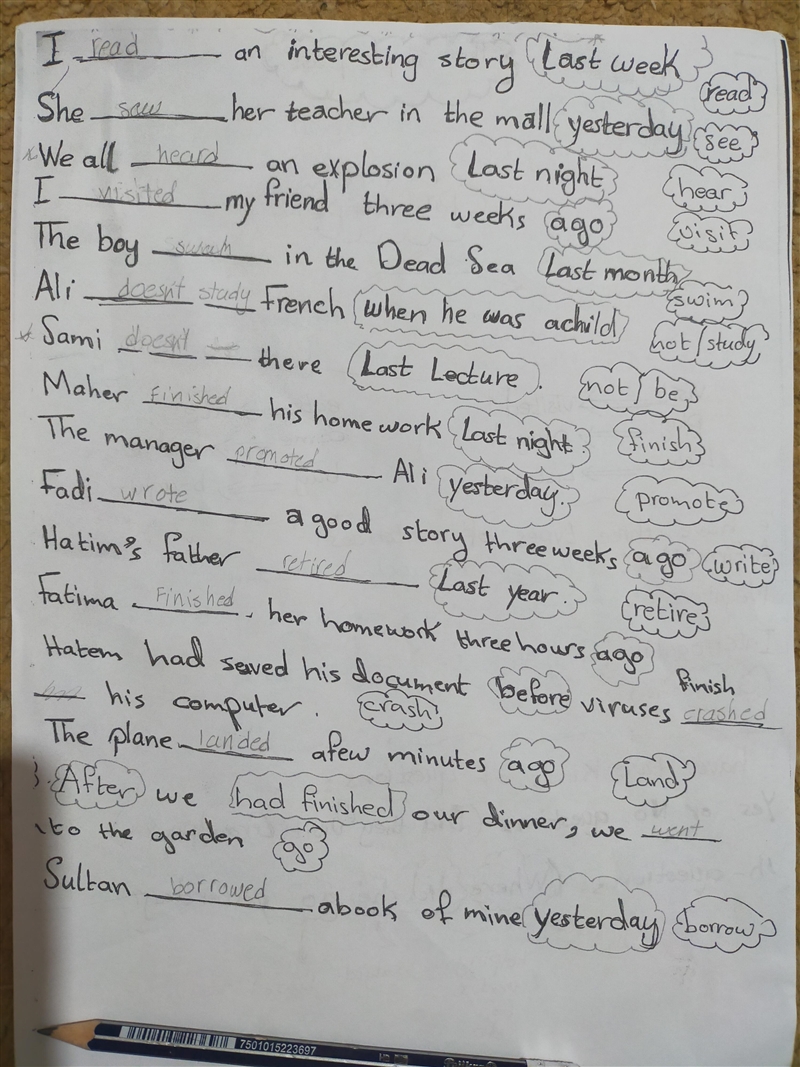 I read an interesting story Last week
read
She saw her teacher in the mall yesterday
see
We all heard an explosion Last night
hear
I visited my friend three weeks ago
visit
The boy in the Dead Sea Last month
swim
Ali doesn't study French when he was achild
not/study
Sami doesn't there Last Lecture.
not/be
Maher finished his homework Last night.
finish
The manager promoted Ali yesterday.
promote
Fadi wrote a good story three weeks ago
write
Hatim's father retired Last year.
retire
Fatima Finished. her homework three hours ago
finish
Hatem had saved his document before viruses crashed
his computer. crash
The plane landed afew minutes ago
Land
After we had finished our dinner, we went
to the garden go
Sultan borrowed abook of mine yesterday
borrow
7501015223697